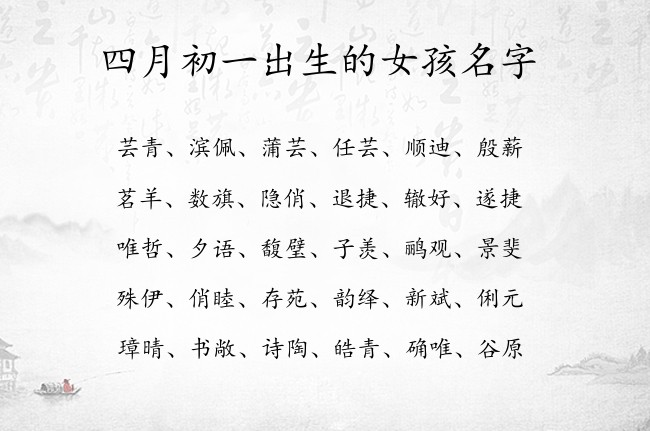 四月初一出生的女孩名字
芸青、滨佩、蒲芸、任芸、顺迪、殷薪
茗羊、数旗、隐俏、退捷、辙好、遂捷
唯哲、夕语、馥璧、子羡、鹂观、景斐
殊伊、俏睦、存苑、韵绎、新斌、俐元
璋晴、书敞、诗陶、皓青、确唯、谷原